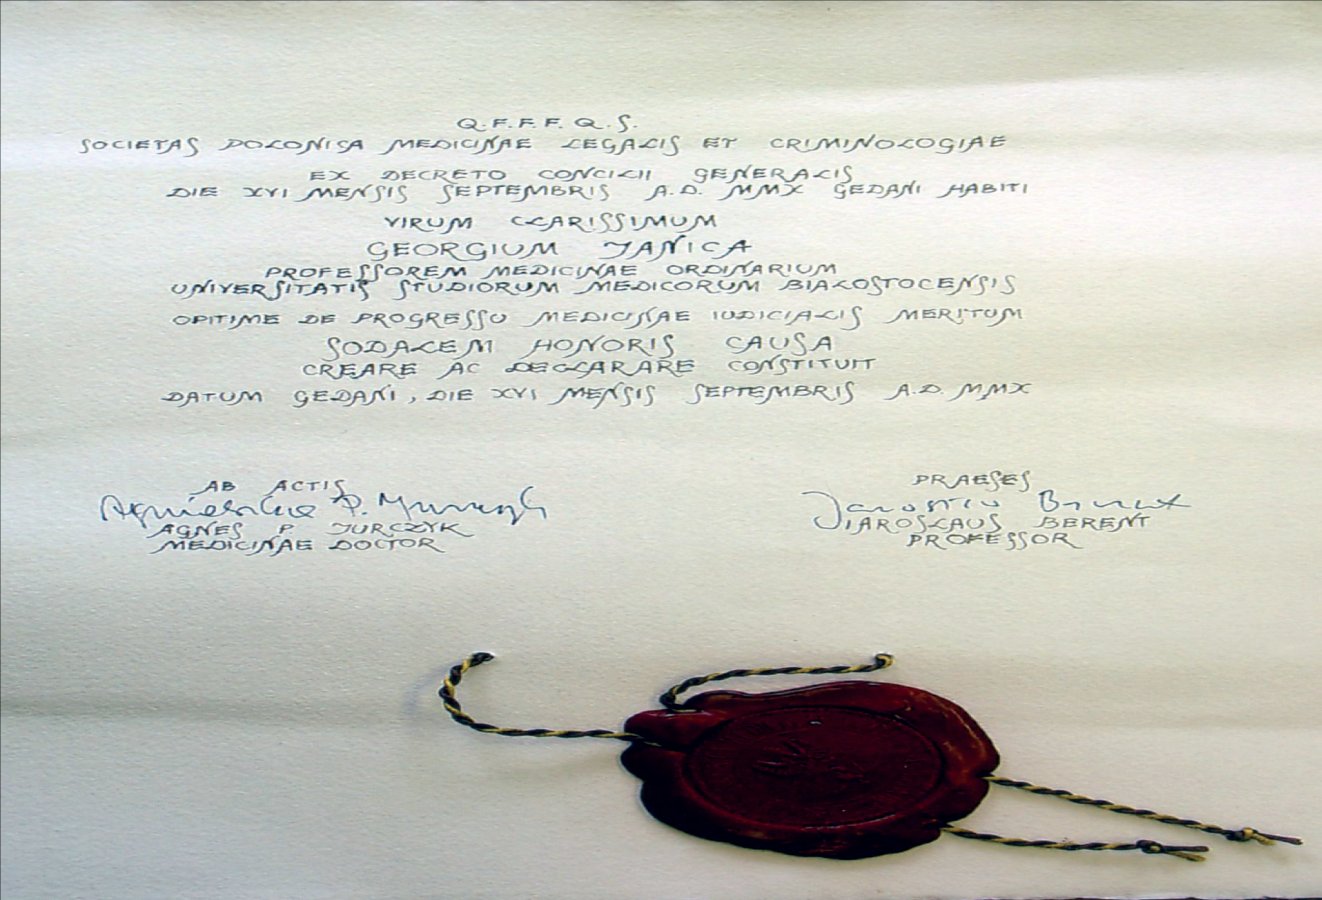 Q.F.F.F.Q.S.
SOCIETAS POLONICA MEDICINAE LEGALIS ET CRIMINOLOGIAE
EX DECRETO CONCILII GENERALIS
DIE XVI MENSIS SEPTEMBRIS A.D. MMX GEDANI HABITI
VIRUM CLARISSIMUM
GEORGIUM JANICA
PROFESSOREM MEDICINAE ORDINARIUM
UNIVERSITATIS STUDIORUM MEDICORUM BIALOSTOCENSIS
OPITIME DE PROGRESSU MEDICINAE IUDICIALIS MERITUM
SODALEM HONORIS CAUSA
CREARE AC DECLARARE CONSTITUIT
DATUM GEDANI, DIE XVI MENSIS SEPTEMBRIS A.D. MMX
AB ACTIS
AGNES P. JURCZYK
MEDICINAE DOCTOR
PRAESES
IAROSLAUS BERENT
PROFESSOR